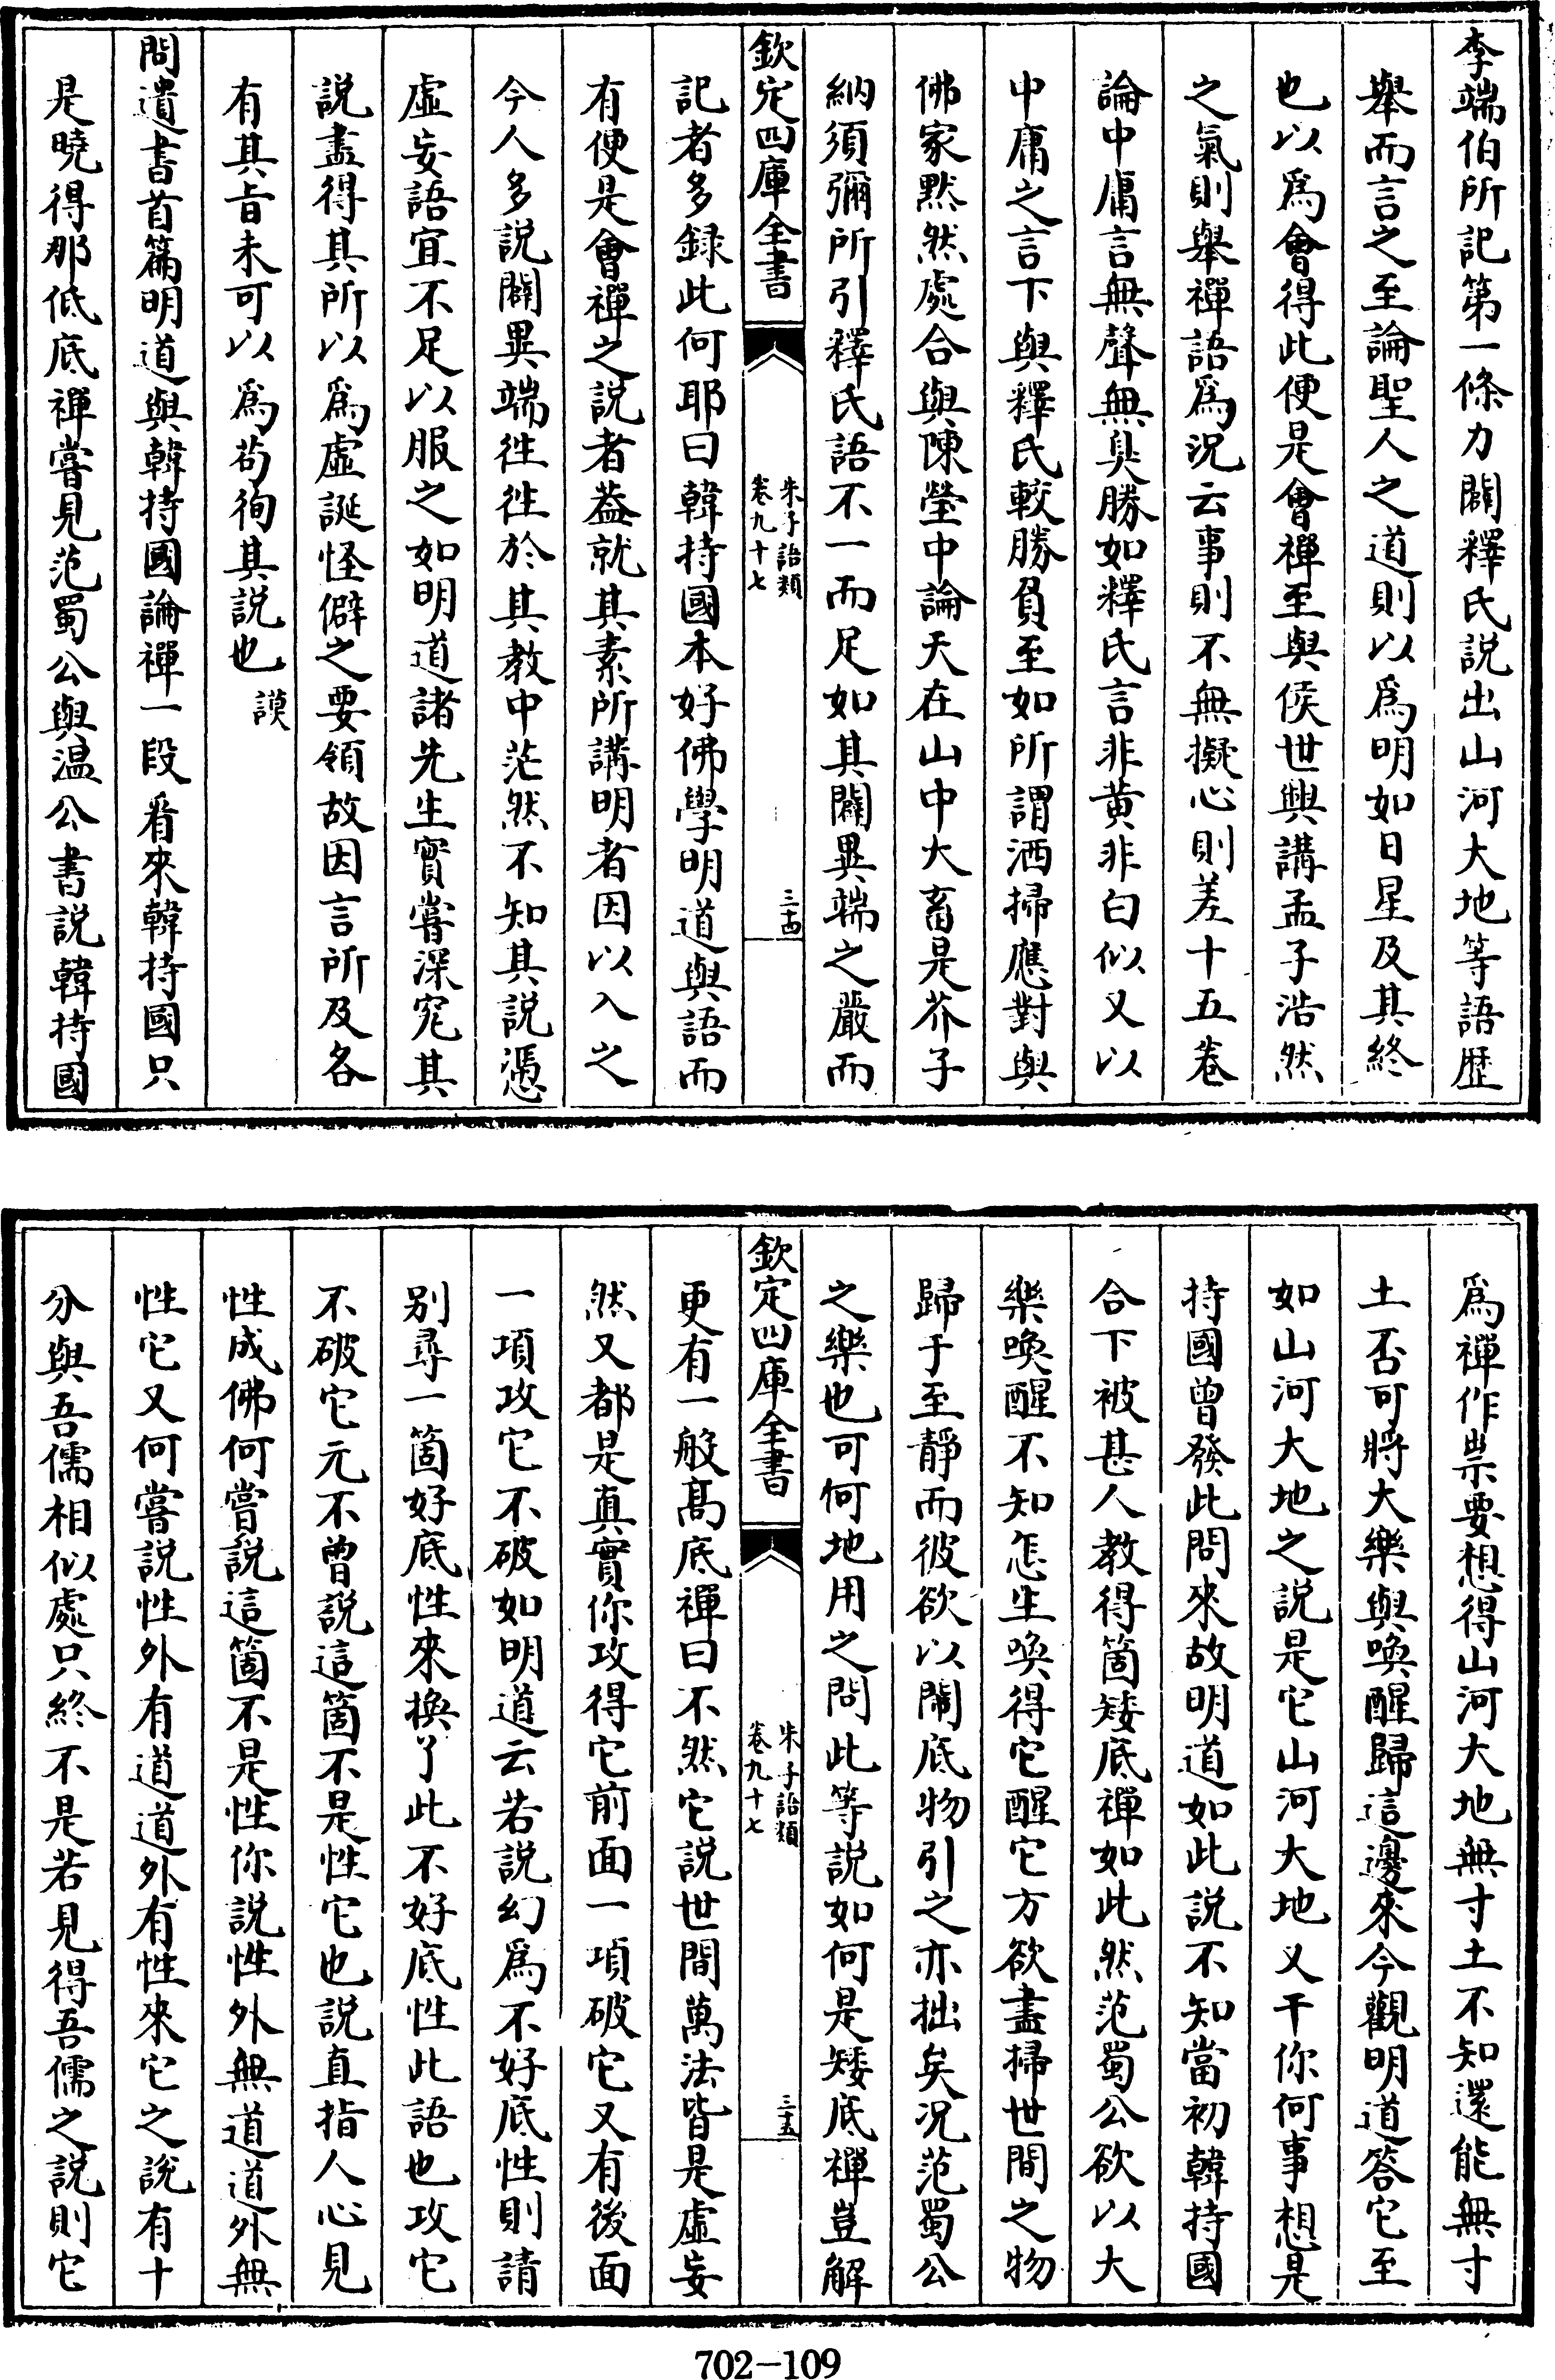 李端伯所記第一條力闢釋氏説出山河大地等語歴
舉而言之至論聖人之道則以爲明如日星及其終
也以爲會得此便是會禪至與侯世興講孟子浩然
之氣則舉禪語爲況云事則不無擬心則差十五卷
論中庸言無聲無臭勝如釋氏言非黄非白似又以
中庸之言下與釋氏較勝負至如所謂洒掃應對與
佛家黙然處合與陳瑩中論天在山中大畜是芥子
納須彌所引釋氏語不一而足如其闢異端之嚴而
欽定四庫全書
朱子語類
卷九十七
三十四
記者多録此何耶曰韓持國本好佛學明道與語而
有便是會禪之説者葢就其素所講明者因以入之
今人多説闢異端徃徃於其教中茫然不知其説馮
虛妄語宜不足以服之如明道諸先生實嘗深究其
説盡得其所以爲虛誕怪僻之要領故因言所及各
有其旨未可以爲苟徇其説也謨
問遺書首篇明道與韓持國論禪一段看來韓持國只
是曉得那低底禪嘗見范蜀公與温公書説韓持國
爲禪作祟要想得山河大地無寸土不知還能無寸
土否可將大樂與喚醒歸這邊來今觀明道答它至
如山河大地之説是它山河大地又干你何事想是
持國曾發此問來故明道如此説不知當初韓持國
合下被甚人教得箇矮底禪如此然范蜀公欲以大
樂喚醒不知怎生喚得它醒它方欲盡掃世間之物
歸于至靜而彼欲以閙底物引之亦拙矣况范蜀公
之樂也可何地用之問此等説如何是矮底禪豈解
欽定四庫全書
朱子語類
卷九十七
三十五
更有一般髙底禪曰不然它説世間萬法皆是虛妄
然又都是真實你攻得它前面一項破它又有後面
一項攻它不破如明道云若説幻爲不好底性則請
别尋一箇好底性來換了此不好底性此語也攻它
不破它元不曾説這箇不是性它也説直指人心見
性成佛何嘗説這箇不是性你説性外無道道外無
性它又何嘗説性外有道道外有性來它之說有十
分與吾儒相似處只終不是若見得吾儒之説則它
702-109